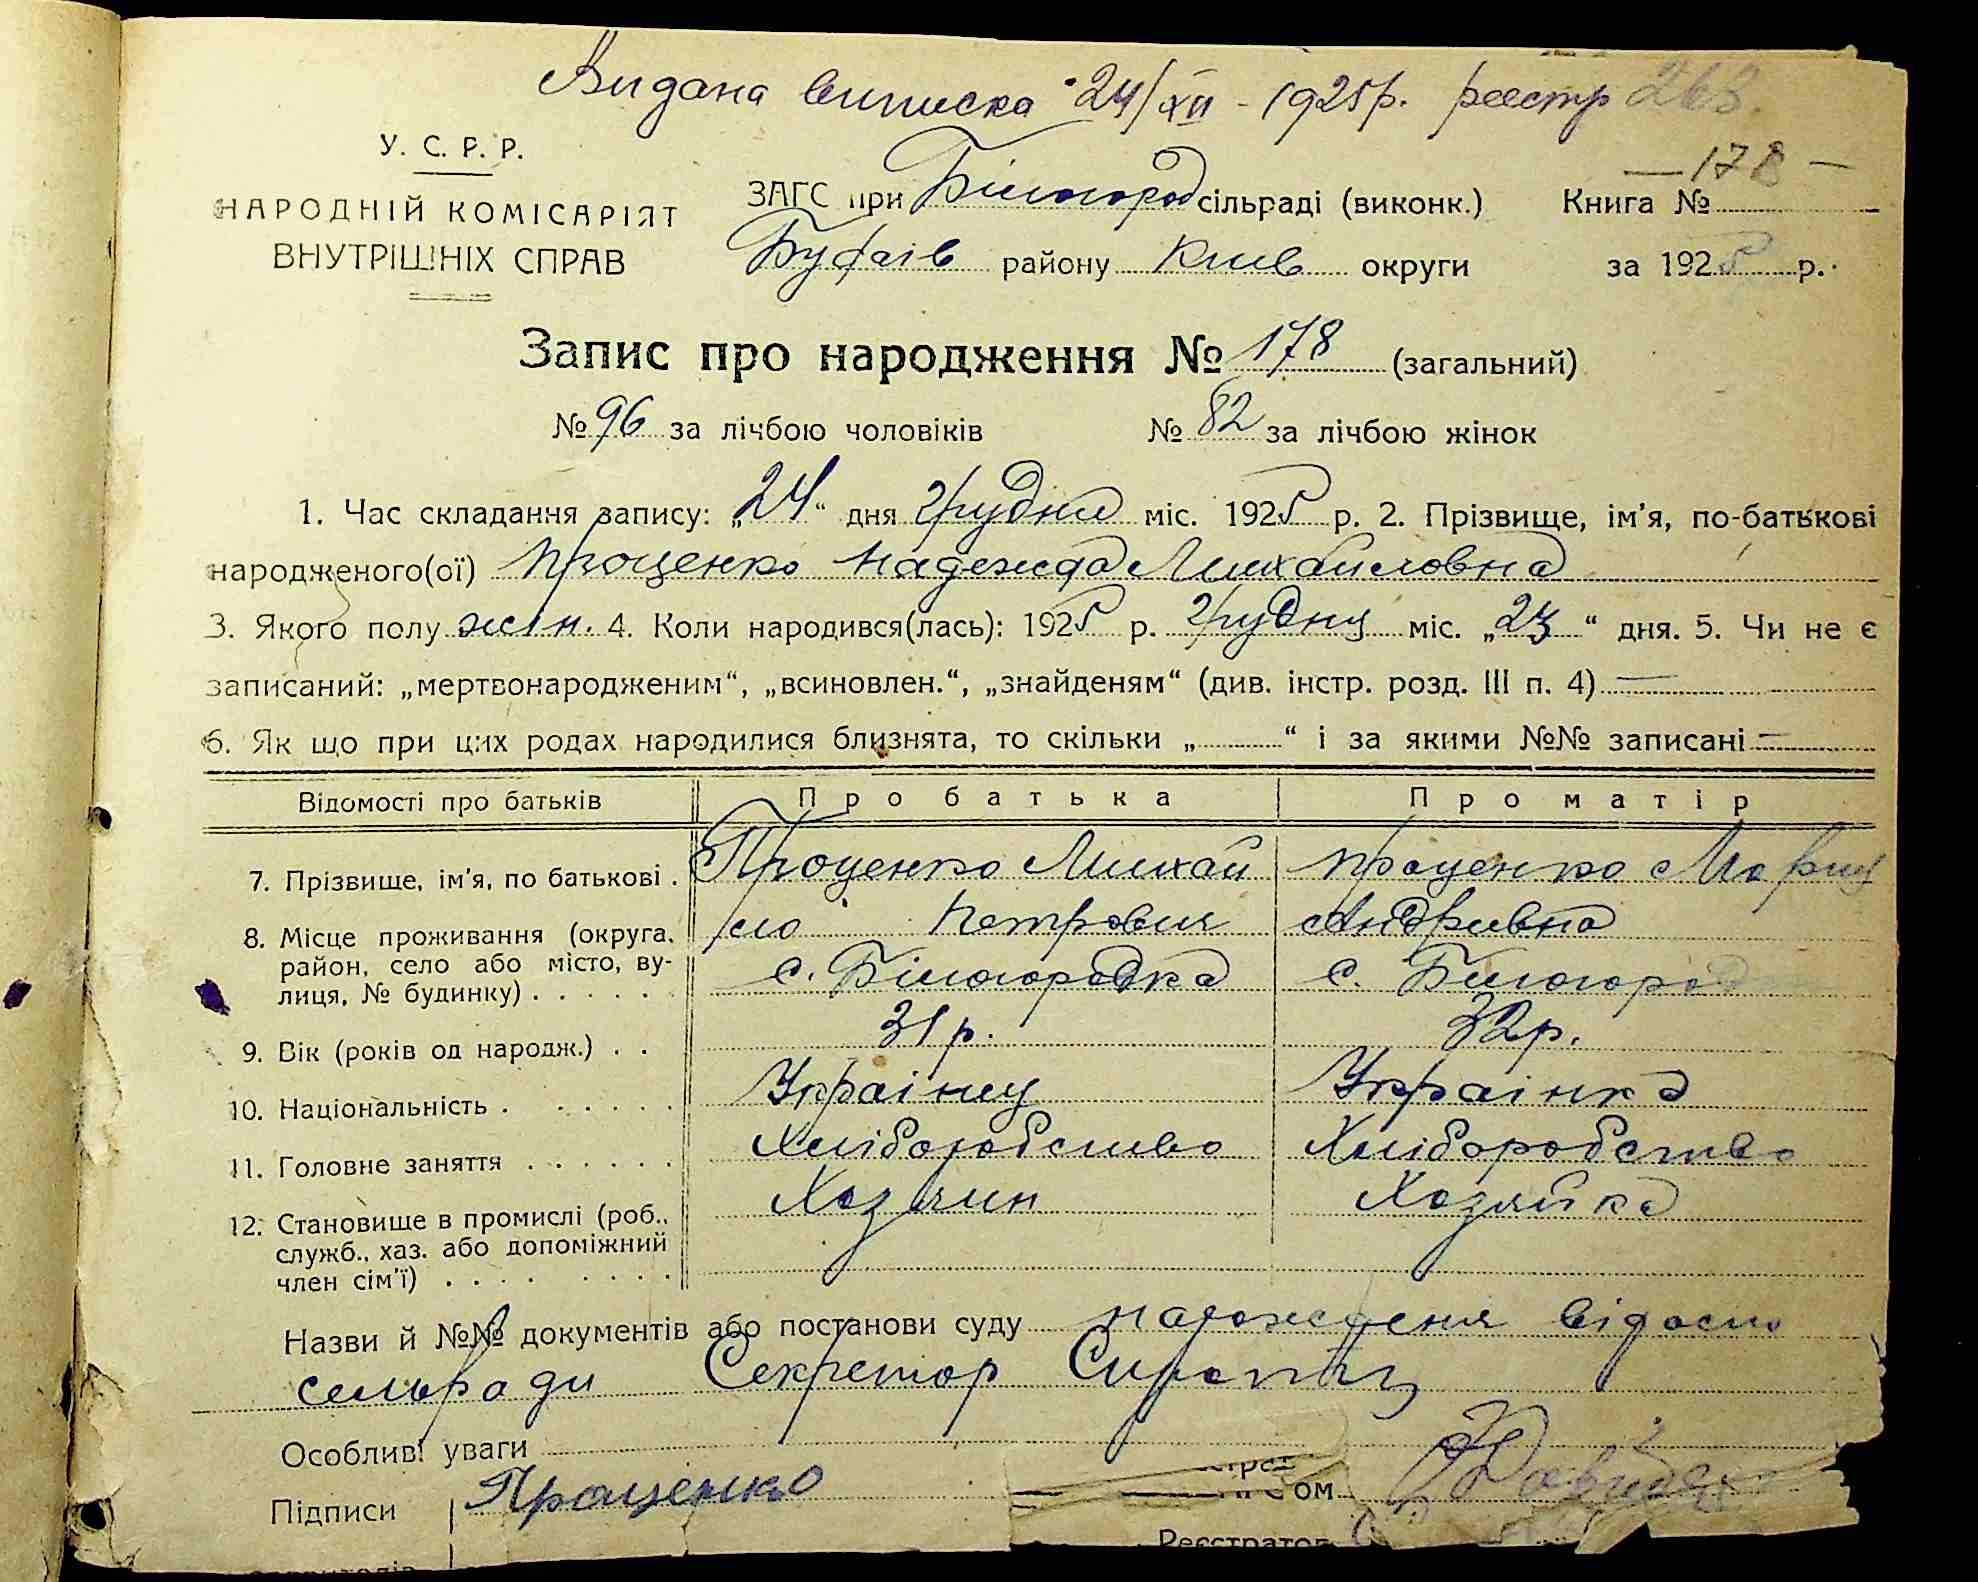 Видана виписка 24/XII - 1925 р. реестр 263.
— 178 —
У. С. Р. Р.
НАРОДНІЙ КОМІСАРІЯТ
ВНУТРІШНІХ СПРАВ
ЗАГС при Білогород сільраді (виконк.) Книга №
Будаїв району Київ округи за 1925 р.
Запис про народження № 178 (загальний)
№ 96 за лічбою чоловіків № 82 за лічбою жінок
1. Час складання запису: „24“ дня Грудня міс. 1925 р. 2. Прізвище, ім'я, по-батькові
народженого(ої) Проценко Надежда Михайловна
3. Якого полу жін. 4. Коли народився(лась): 1925 р. Грудня міс. „23“ дня. 5. Чи не є
записаний: „мертвонародженим“, „всиновлен.“, „знайденям“ (див. інстр. розд. III п. 4) —
6. Як що при цих родах народилися близнята, то скільки „.....“ і за якими №№ записані —
Відомості про батьків Про батька Про матір
7. Прізвище, ім'я, по батькові . Проценко Михай Проценко Мария
ло Петрович Андривна
8. Місце проживання (округа,
район, село або місто, ву-
лиця, № будинку) . . . . . с. Білогородка с. Білогород
9. Вік (років од народж.) . . 31 р. 32 р.
10. Національність . . . . . . Украінец Украінка
11. Головне заняття . . . . . . Хліборобство Хліборобство
12. Становище в промислі (роб.,
служб., хаз. або допоміжний
член сім'ї) . . . . . . . . Хозяин Хозяйка
Назви й №№ документів або постанови суду народженя
сельради Секретор
Особливі уваги
Підписи Проценко
ом
Реєстратор